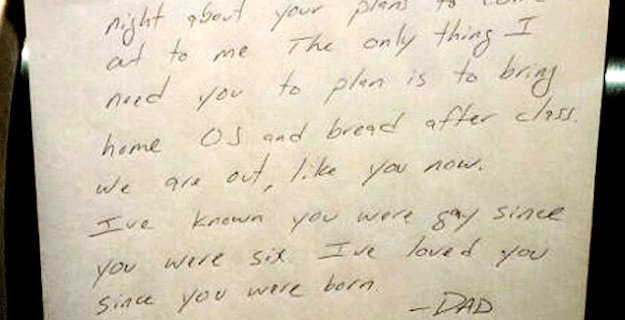 night about your plans to come
out to me The only thing I
need you to plan is to bring
home OJ and bread after class.
We are out, like you now.
I've known you were gay since
you were six I've loved you
since you were born.
-DAD